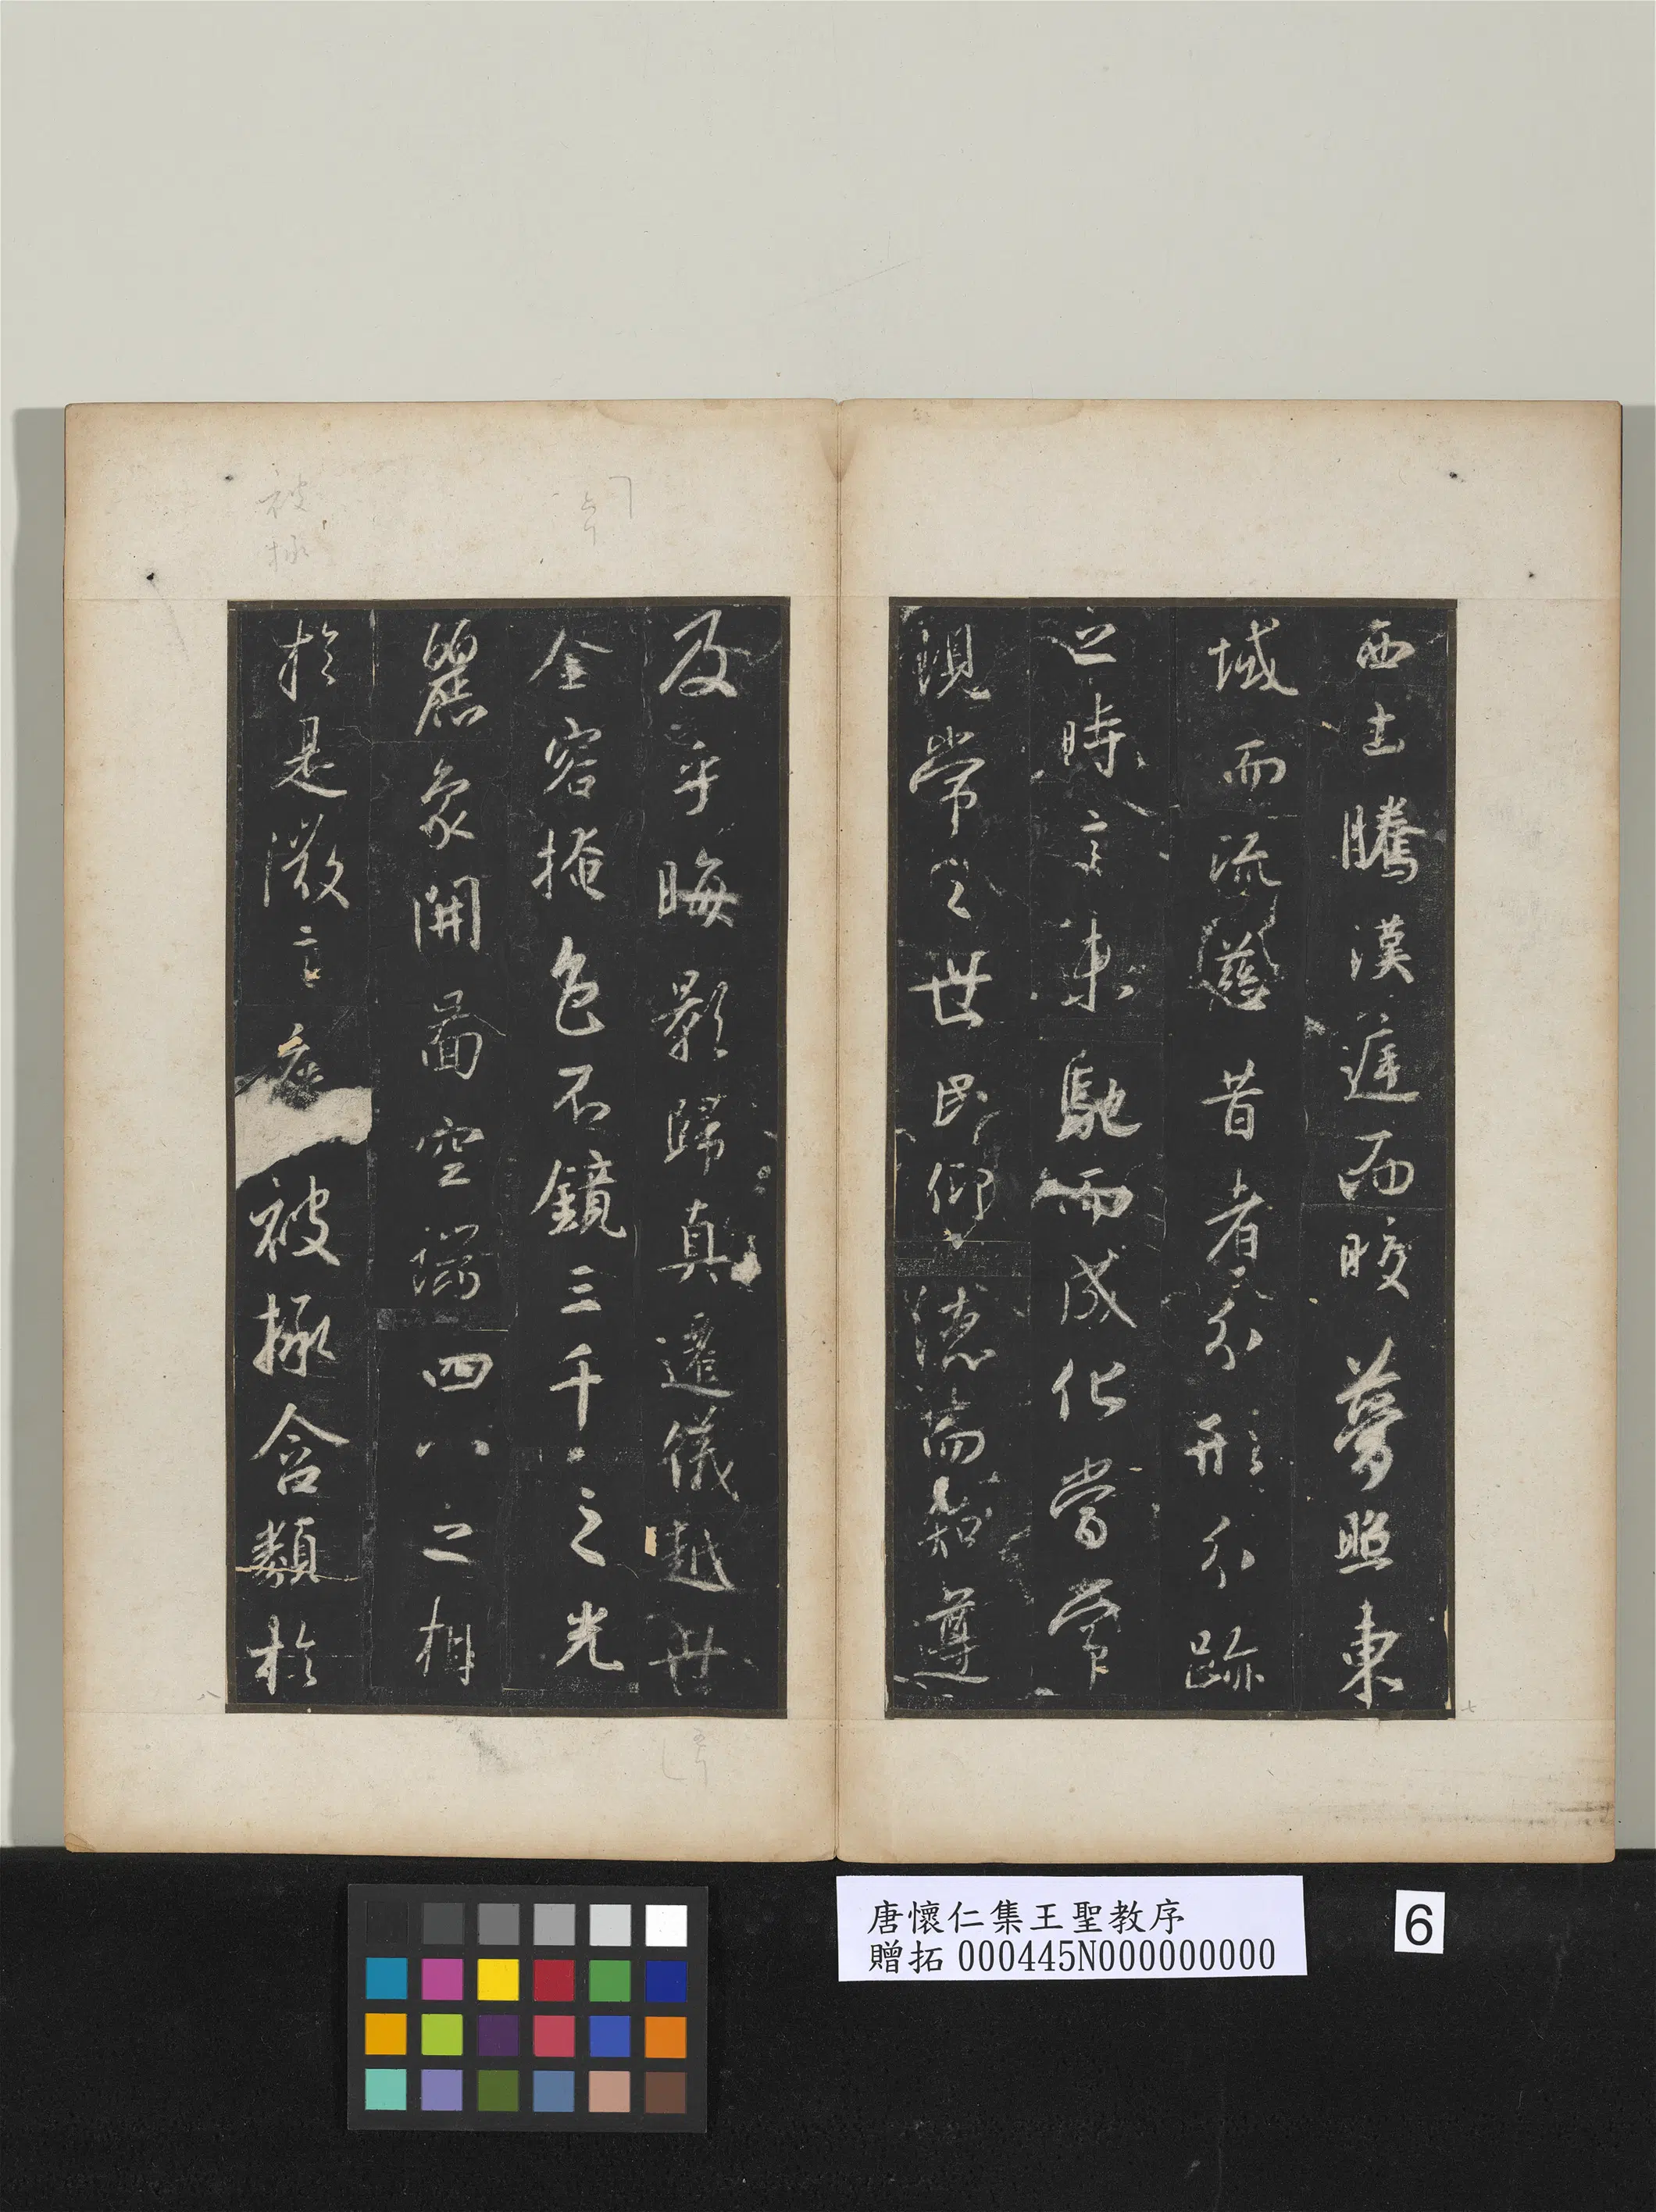 西土騰漢庭而皎夢照東
域而流慈昔者分形分跡
之時言未馳而成化當常
現常之世民仰德而知遵
七
及乎晦影歸真遷儀越世
金容掩色不鏡三千之光
麗象開圖空端四八之相
於是微言廣被拯含類於
被拯
八
唐懷仁集王聖教序
贈拓 000445N000000000
6